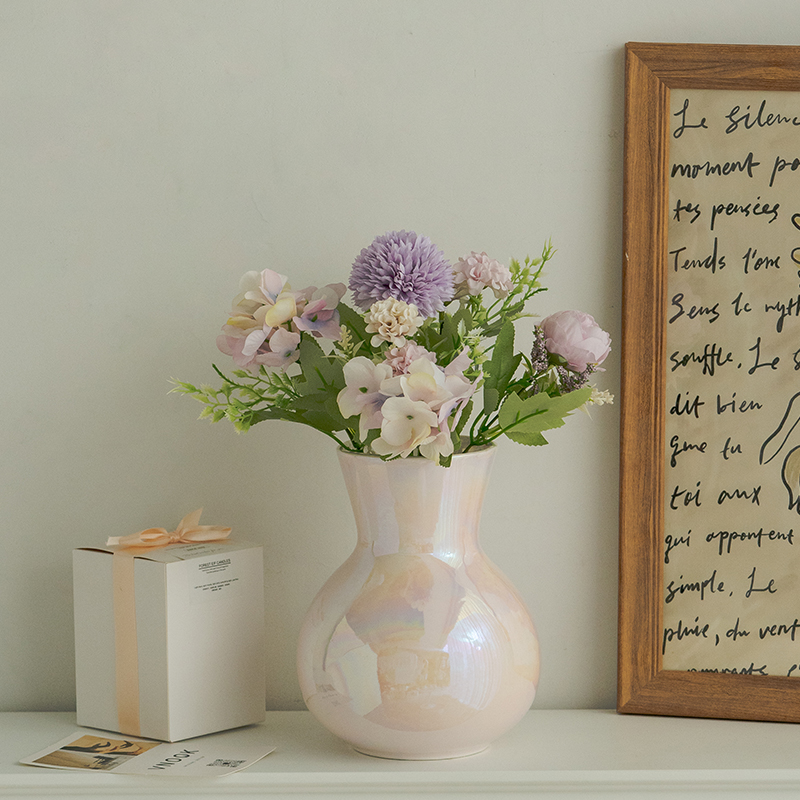 Le Silenc
moment po
tes pensées
Tends l'ore
Sens le ryth
souffle. Le s
dit bien
que tu
toi aux
qui apportent
simple. Le
pluie, du vent
FOREST OF CANDLES
YNOOK